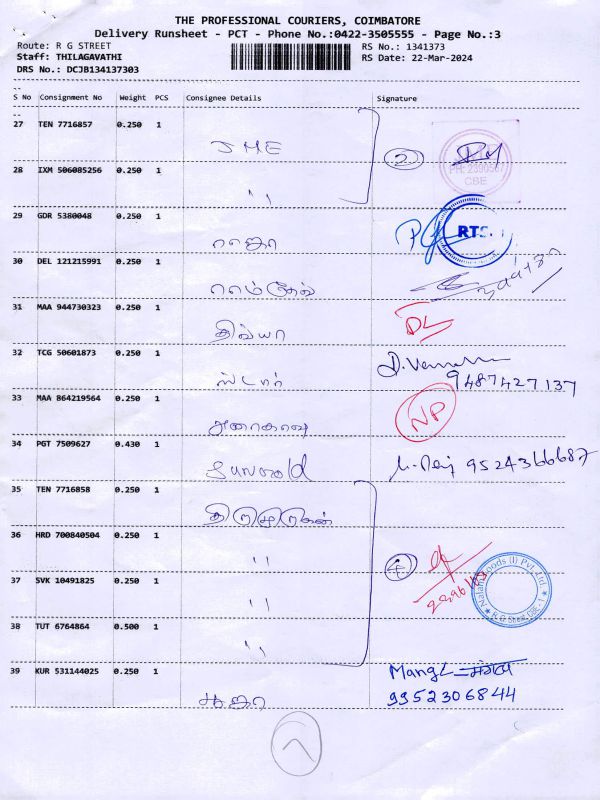 THE PROFESSIONAL COURIERS, COIMBATORE
Delivery Runsheet - PCT - Phone No.:0422-3505555 - Page No.:3
Route: R G STREET RS No.: 1341373
Staff: THILAGAVATHI RS Date: 22-Mar-2024
DRS No.: DCJB134137303
S No Consignment No Weight PCS Consignee Details Signature
27 TEN 7716857 0.250 1
JME 2
28 IXM 506085256 0.250 1
CBE
〃
29 GDR 5380048 0.250 1
RTS.
ராஜா
30 DEL 121215991 0.250 1
31 MAA 944730323 0.250 1
DL
திவ்யா
32 TCG 50601873 0.250 1
ஸ்டார் 9487427137
33 MAA 864219564 0.250 1
NP
34 PGT 7509627 0.430 1
9524366687
35 TEN 7716858 0.250 1
36 HRD 700840504 0.250 1
〃 4
37 SVK 10491825 0.250 1
〃
38 TUT 6764864 0.500 1
〃
39 KUR 531144025 0.250 1
9952306844